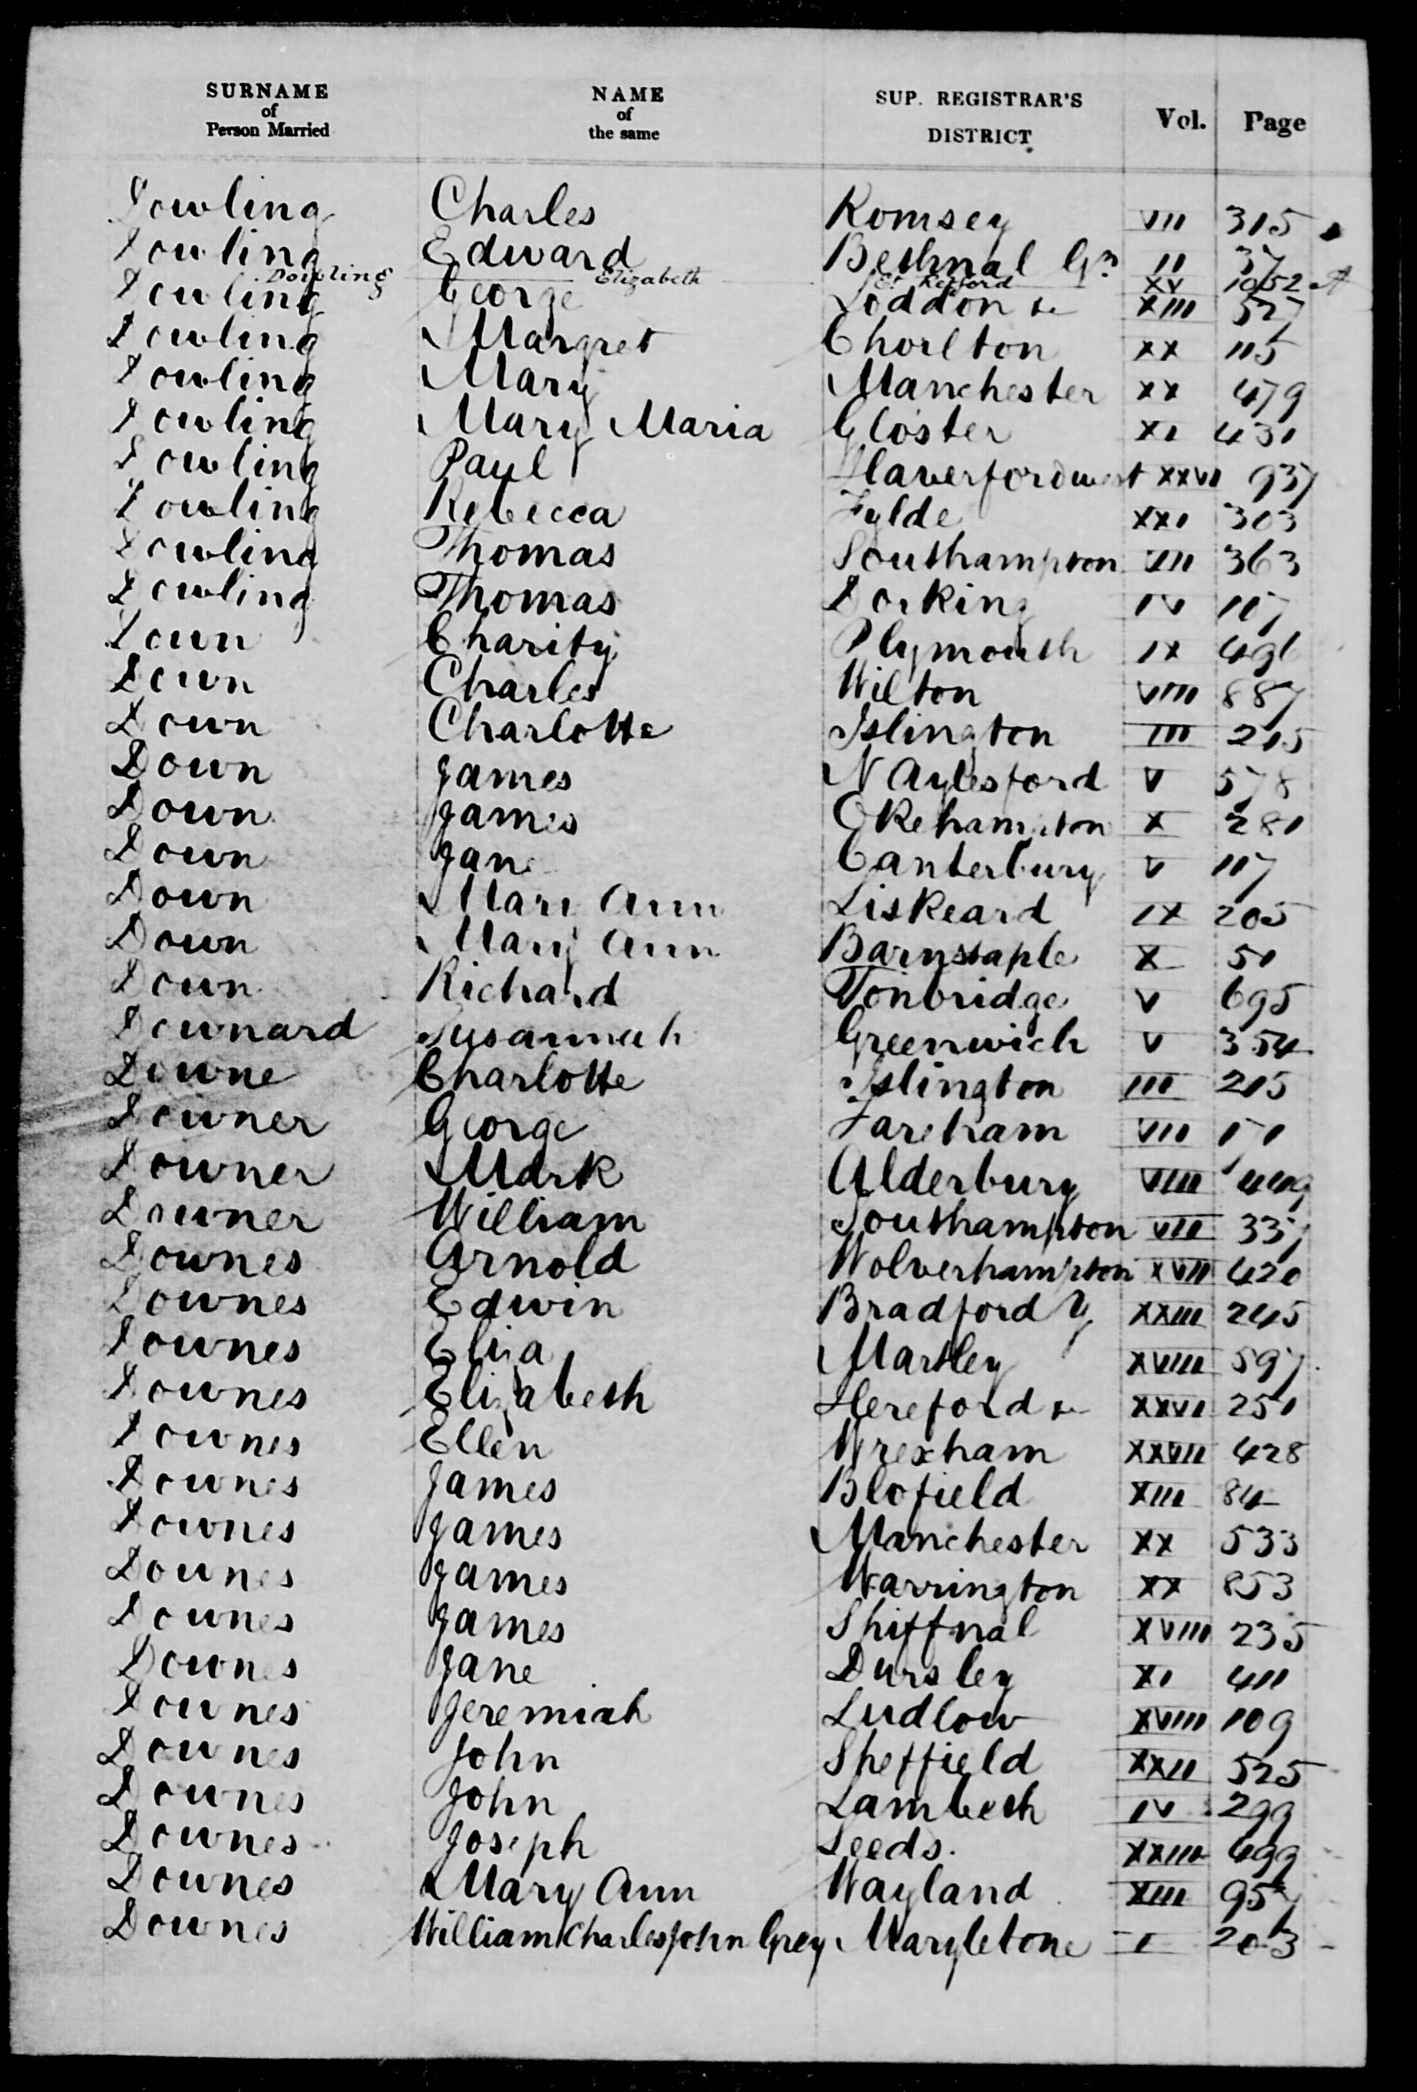 SURNAME of Person Married NAME of the same SUP. REGISTRAR'S DISTRICT Vol. Page
Dowling Charles Romsey VII 315
Dowling Edward Bethnal Gn II 37
Dowling Elizabeth Et Retford XV 1052 A
Dowling George Loddon &c XIII 527
Dowling Margret Chorlton XX 115
Dowling Mary Manchester XX 479
Dowling Mary Maria Gloster XI 431
Dowling Paul Haverfordwest XXVI 937
Dowling Rebecca Fylde XXI 303
Dowling Thomas Southampton VII 363
Dowling Thomas Dorking IV 107
Down Charity Plymouth IX 496
Down Charles Wilton VIII 887
Down Charlotte Islington III 215
Down James N Aylesford V 578
Down James Okehampton X 281
Down Jane Canterbury V 117
Down Mary Ann Liskeard IX 205
Down Mary Ann Barnstaple X 51
Down Richard Tonbridge V 695
Downard Susannah Greenwich V 354
Downe Charlotte Islington III 215
Downer George Fareham VII
Downer Mark Alderbury VIII
Downer William Southampton VII 337
Downes Arnold Wolverhampton XVII 420
Downes Edwin Bradford Y XXIII 245
Downes Eliza Martley XVIII 597
Downes Elizabeth Hereford &c XXVI 251
Downes Ellen Wrexham XXVII 428
Downes James Blofield XIII 84
Downes James Manchester XX 533
Downes James Warrington XX 853
Downes James Shiffnal XVIII 235
Downes Jane Dursley XI 411
Downes Jeremiah Ludlow XVIII 109
Downes John Sheffield XXII 525
Downes John Lambeth IV 299
Downes Joseph Leeds. XXIII 499
Downes Mary Ann Wayland XIII 957
Downes William Charles John Grey Marylebone I 203